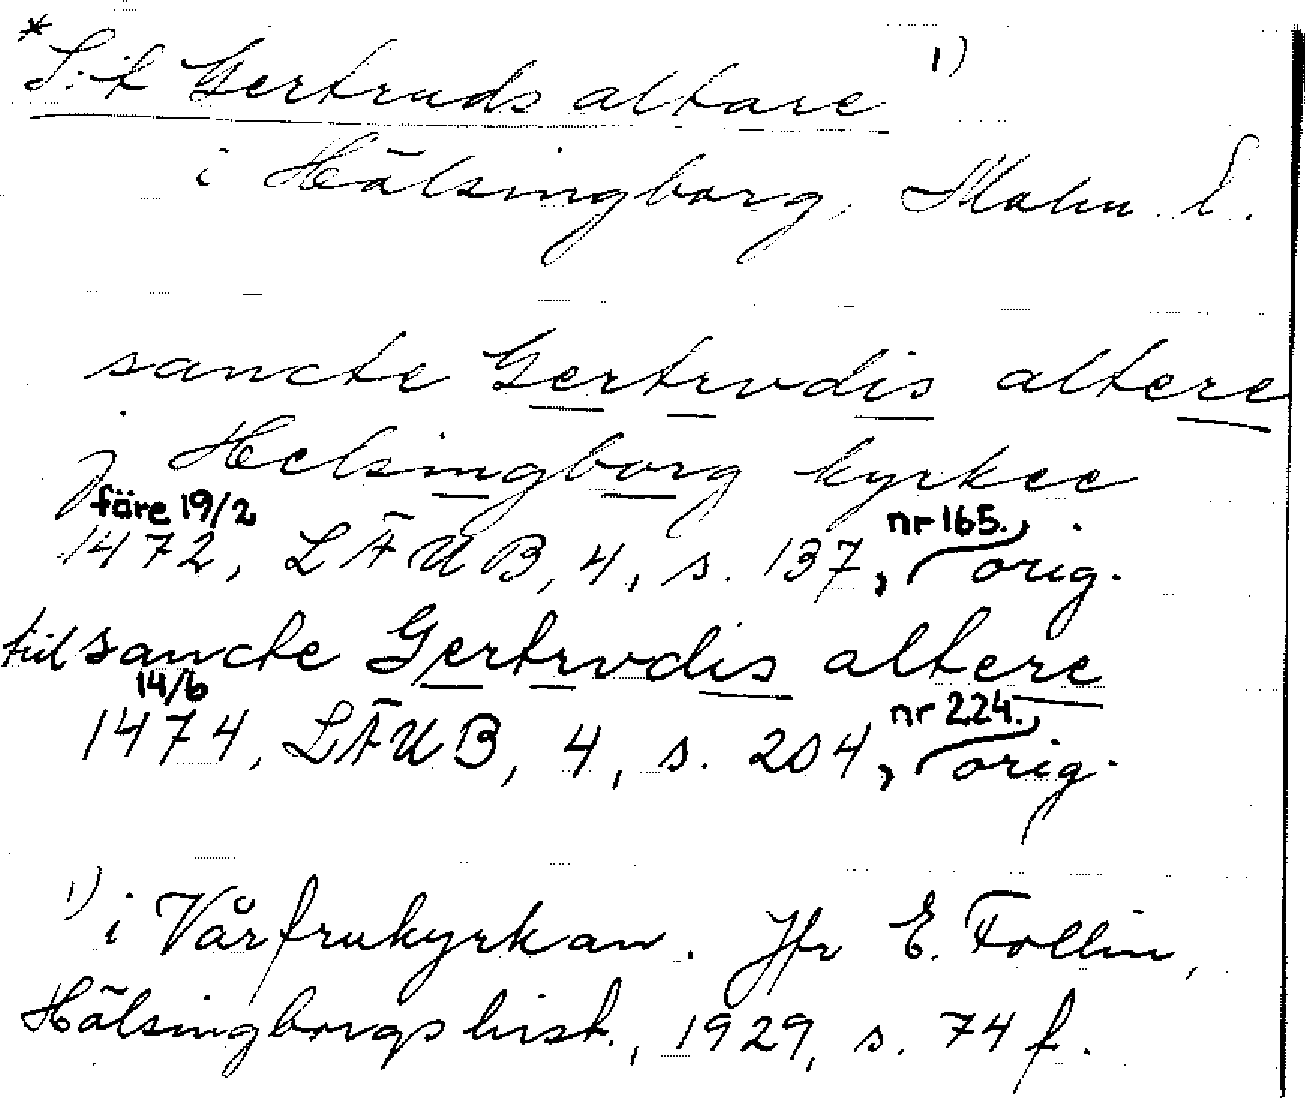 * S:t Gertruds altare 1)
i Hälsingborg, Malm. L.
sancte Gertrvdis altere
j Helsingborg kyrkee
före 19/2 nr 165.,
1472, LÄUB, 4, s. 137, orig.
till sancte Gertrvdis altere
14/6 nr 224.,
1474, LÄUB, 4, s. 204, orig.
1) i Vårfrukyrkan. Jfr E. Follin,
Hälsingborgs hist., 1929, s. 74 f.